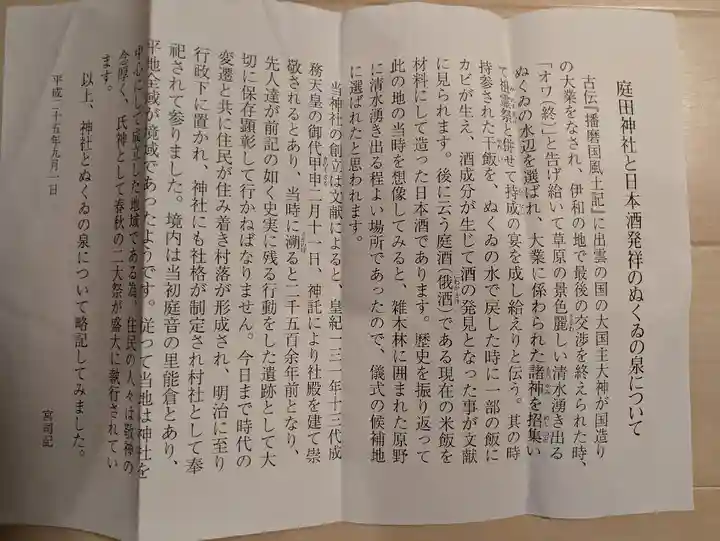 庭田神社と日本酒発祥のぬくゐの泉について
古伝『播磨国風土記』に出雲の国の大国主大神が国造り
の大業をなされ、伊和の地で最後の交渉を終えられた時、
「オワ(終)」と告げ給いて草原の景色麗しい清水湧き出る
ぬくゐの水辺を選ばれ、大業に係わられた諸神を招集い
て祖霊祭と併せて持成の宴を成し給えりと伝う。其の時
持参された干飯を、ぬくゐの水で戻した時に一部の飯に
カビが生え、酒成分が生じて酒の発見となった事が文献
に見られます。後に云う庭酒(俄酒)である現在の米飯を
材料にして造った日本酒であります。歴史を振り返って
此の地の当時を想像してみると、雑木林に囲まれた原野
に清水湧き出る程よい場所であったので、儀式の候補地
に選ばれたと思われます。
当神社の創立は文献によると、皇紀一三一年十三代成
務天皇の御代甲申二月十一日、神託により社殿を建て崇
敬されるとあり、当時に溯ると二千五百余年前となり、
先人達が前記の如く史実に残る行動をした遺跡として大
切に保存顕彰して行かねばなりません。今日まで時代の
変遷と共に住民が住み着き村落が形成され、明治に至り
行政下に置かれ、神社にも社格が制定され村社として奉
祀されて参りました。境内は当初庭音の里能倉とあり、
平地全域が境域であったようです。従って当地は神社を
中心にして成立した地域である為、住民の人々は敬神の
念厚く、氏神として春秋の二大祭が盛大に執行されてい
ます。
以上、神社とぬくゐの泉について略記してみました。
平成二十五年九月一日
宮司記